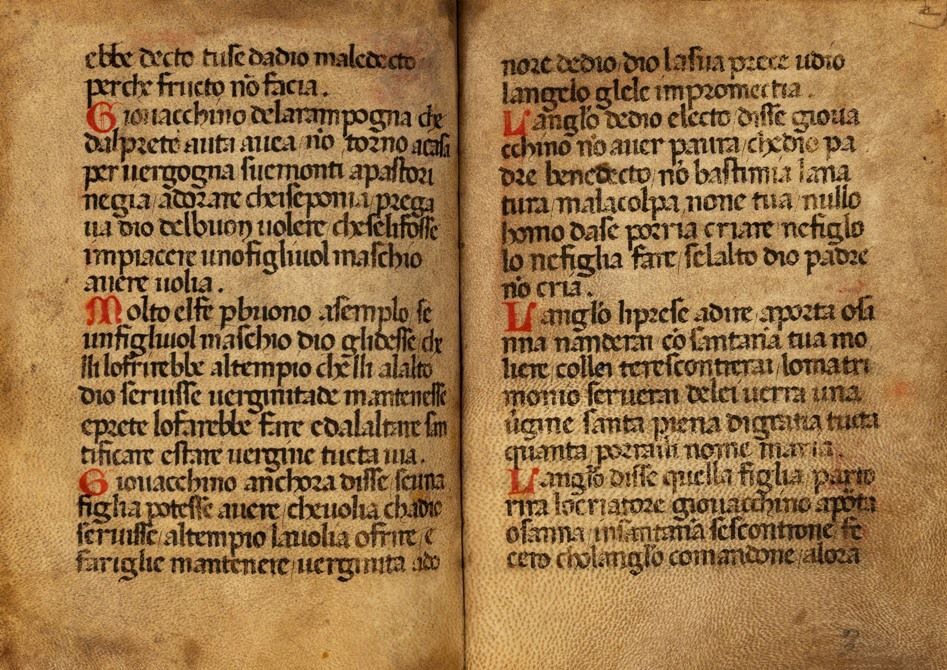 ebbe decto tuse dadio maledecto
perche fructo nō facia .
Giouacchino delarampogna che
dalprete auta auea nō torno acasa
per uergogna suemonti apastori
negia adorare cheiseponia prega
ua dio delbuon uolere cheselifosse
impiacere unofigliuol maschio
auere uolia .
Molto elfe pbuono asemplo se
unfigliuol maschio dio glidesse che
lli loffrirebbe altempio chelli alalto
dio seruisse uerginitade mantenesse
eprete lofarebbe fare edalaltare san
tificare estare uergine tucta uia .
Giouacchino anchora disse seuna
figlia potesse auere cheuolia chadio
seruisse altempio lauolia ofrire e
fariglie mantenere uerginita ado
nore dedio dio lasua prece udio
langelo glele impromectia .
L'anglo dedio electo disse gioua
cchino nō auer paura chedio pa
dre benedecto nō bastimia lana
tura malacolpa none tua nullo
homo dase porria criare nefiglo
lo nefiglia fare selalto dio padre
nō cria .
L'anglo liprese adire aporta osa
nna nanderai cō santaria tua mo
liere collei terescontrerai lomatri
monio seruerai delei uerra una
uigine santa piena digratia tucta
quanta porraili nome maria .
L'anglo disse quella figlia parto
rira locriatore giouacchino aporta
osanna insantaria sescontrone fe
cero cholanglo comandone alora